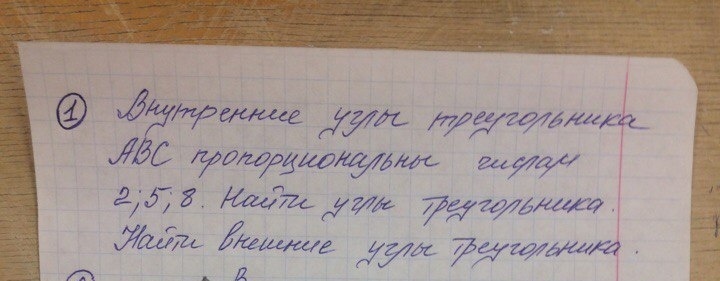 ① Внутренние углы треугольника
ABC пропорциональны числам
2; 5; 8. Найти углы треугольника.
Найти внешние углы треугольника.